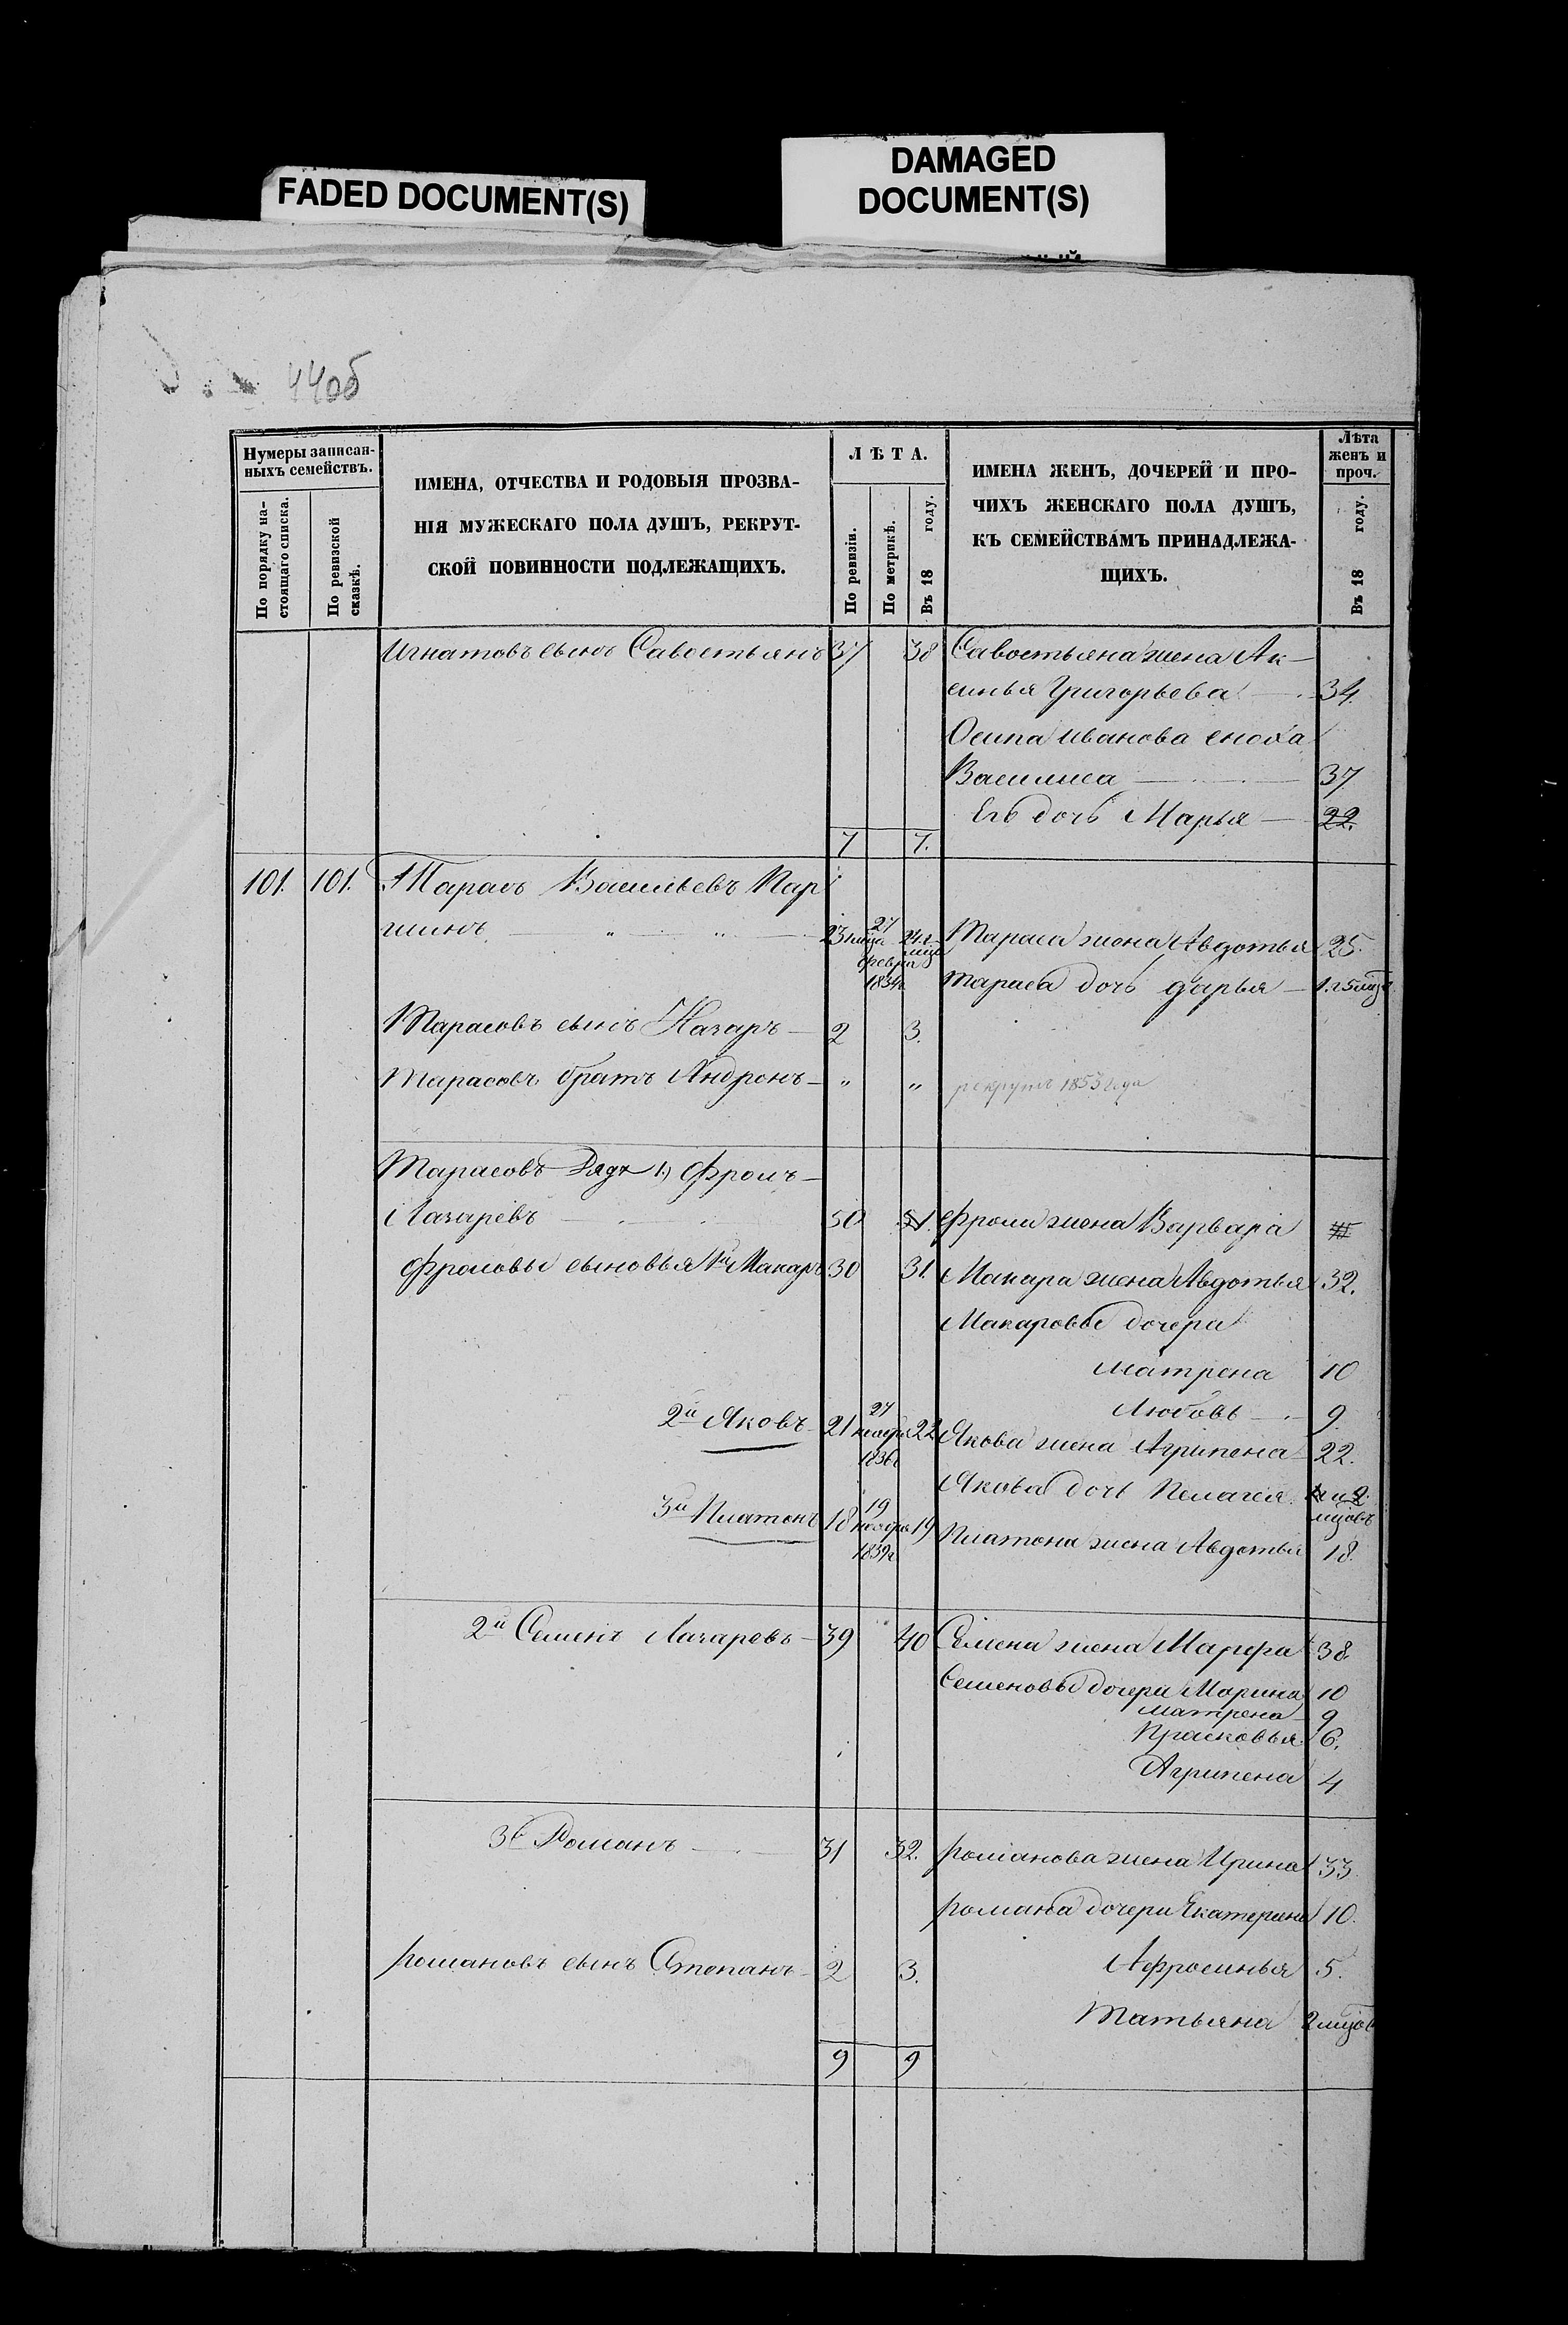 FADED DOCUMENT(S)
DAMAGED
DOCUMENT(S)
44об
Нумеры записан-
ныхъ семействъ.
По порядку на-
стоящаго списка.
По ревизской
сказкѣ.
ИМЕНА, ОТЧЕСТВА И РОДОВЫЯ ПРОЗВА-
НІЯ МУЖЕСКАГО ПОЛА ДУШЪ, РЕКРУТ-
СКОЙ ПОВИННОСТИ ПОДЛЕЖАЩИХЪ.
ЛѢТА.
По ревизіи.
По метрикѣ.
Въ 18 году.
ИМЕНА ЖЕНЪ, ДОЧЕРЕЙ И ПРО-
ЧИХЪ ЖЕНСКАГО ПОЛА ДУШЪ,
КЪ СЕМЕЙСТВАМЪ ПРИНАДЛЕЖА-
ЩИХЪ.
Лѣта
женъ и
проч.
Въ 18 году.
Игнатовъ сынъ Савостьянъ 37 38 Савостьяна жена Ак-
синья Григорьева 34.
Осипа Иванова сноха
Василиса 37
Его дочь Марья 22.
7 7.
101. 101. Тарасъ Васильевъ Пар
шинъ " " 23 27 февра 1834г. 24 Тараса жена Авдотья 25.
Тараса дочь дарья 1.
Тарасовъ сынъ Назаръ 2 3.
Тарасовъ братъ Андронъ " " рекрутъ 1853 года
Тарасовъ Дядя 1) Фролъ
Лазаревъ 50 51. Фрола жена Варвара
Фроловы сыновья 1й Макаръ 30 31. Макара жена Авдотья 32.
Макаровы дочера
Матрена 10
Любовь 9.
2й Яковъ 21 27 1836г 22 Якова жена Агрипена 22.
Якова дочь Пелагея 2 мцовъ
3й Платонъ 18 19 ноября 1839г 19 Платона жена Авдотья 18.
2й Семенъ Лазаревъ 39 40 Семена жена Марфа 38.
Семеновы дочера Марина 10
Матрена 9
Прасковья 6.
Агрипена 4
3й Романъ 31 32. Романова жена Ирина 33
Романа дочери Екатерина 10.
Романовъ сынъ Степанъ 2 3. Афросинья 5.
Татьяна 2 мцов
9 9